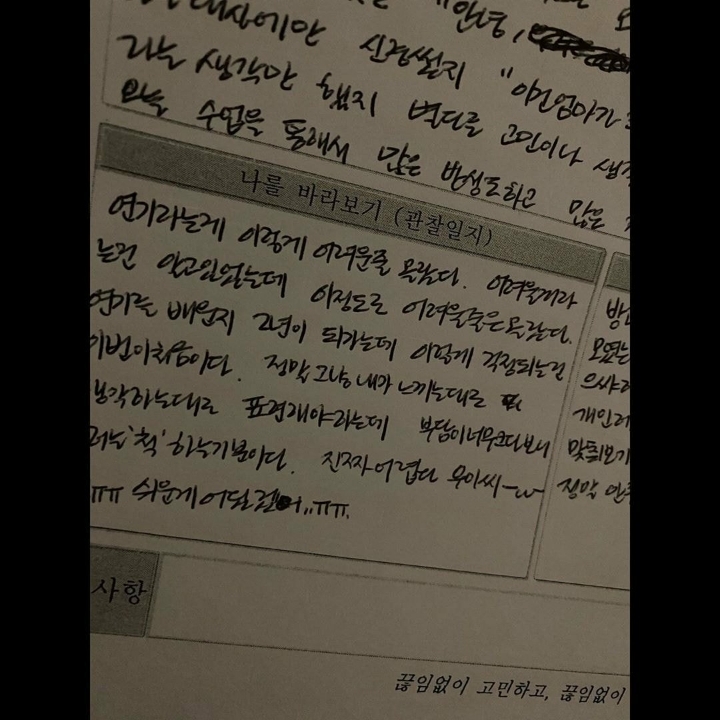 대사에만 신경쓸지 "이건 엄마가
라는 생각만 했지 별다른 고민이나 생각
오늘 수업을 통해서 많은 반성도하고 많은
나를 바라보기 (관찰일지)
연기라는게 이렇게 어려운줄 몰랐다. 어려울거라
는건 알고있었는데 이정도로 어려울줄은몰랐다.
연기를 배운지 2년이 되가는데 이렇게 걱정되는건
이번이처음이다. 정막 그냥 내가 느끼는대로
생각하는대로 표현해야라는데 부담이너무크다보니
러는 '척' 하는기분이다. 진짜어렵다 우아씨-ㅠ-
ㅠㅠ 쉬운게어딨겠어,,ㅠㅠ.
모였는
개인
맞춰보기
정막
사항
끊임없이 고민하고, 끊임없이